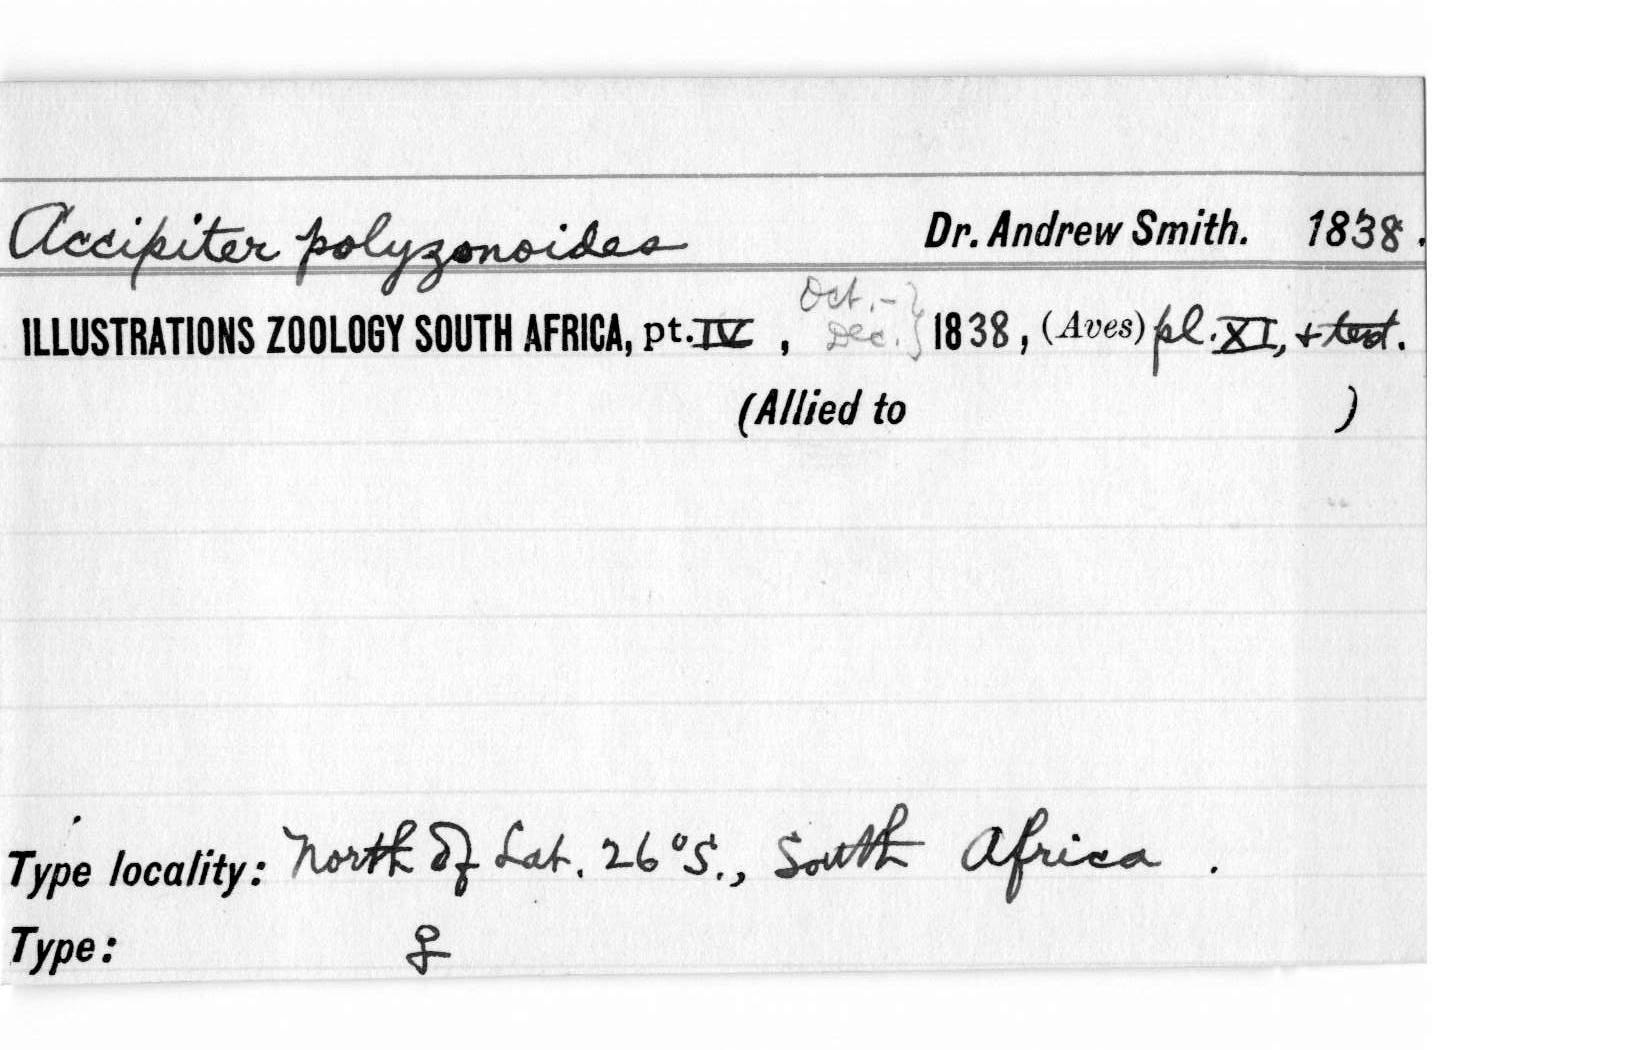 Accipiter polyzonoides Dr. Andrew Smith. 1838.
ILLUSTRATIONS ZOOLOGY SOUTH AFRICA, pt. IV, Oct.-Dec.} 1838, (Aves) pl. XI, + text.
(Allied to )
Type locality: North of Lat. 26°S., South Africa.
Type: ♀